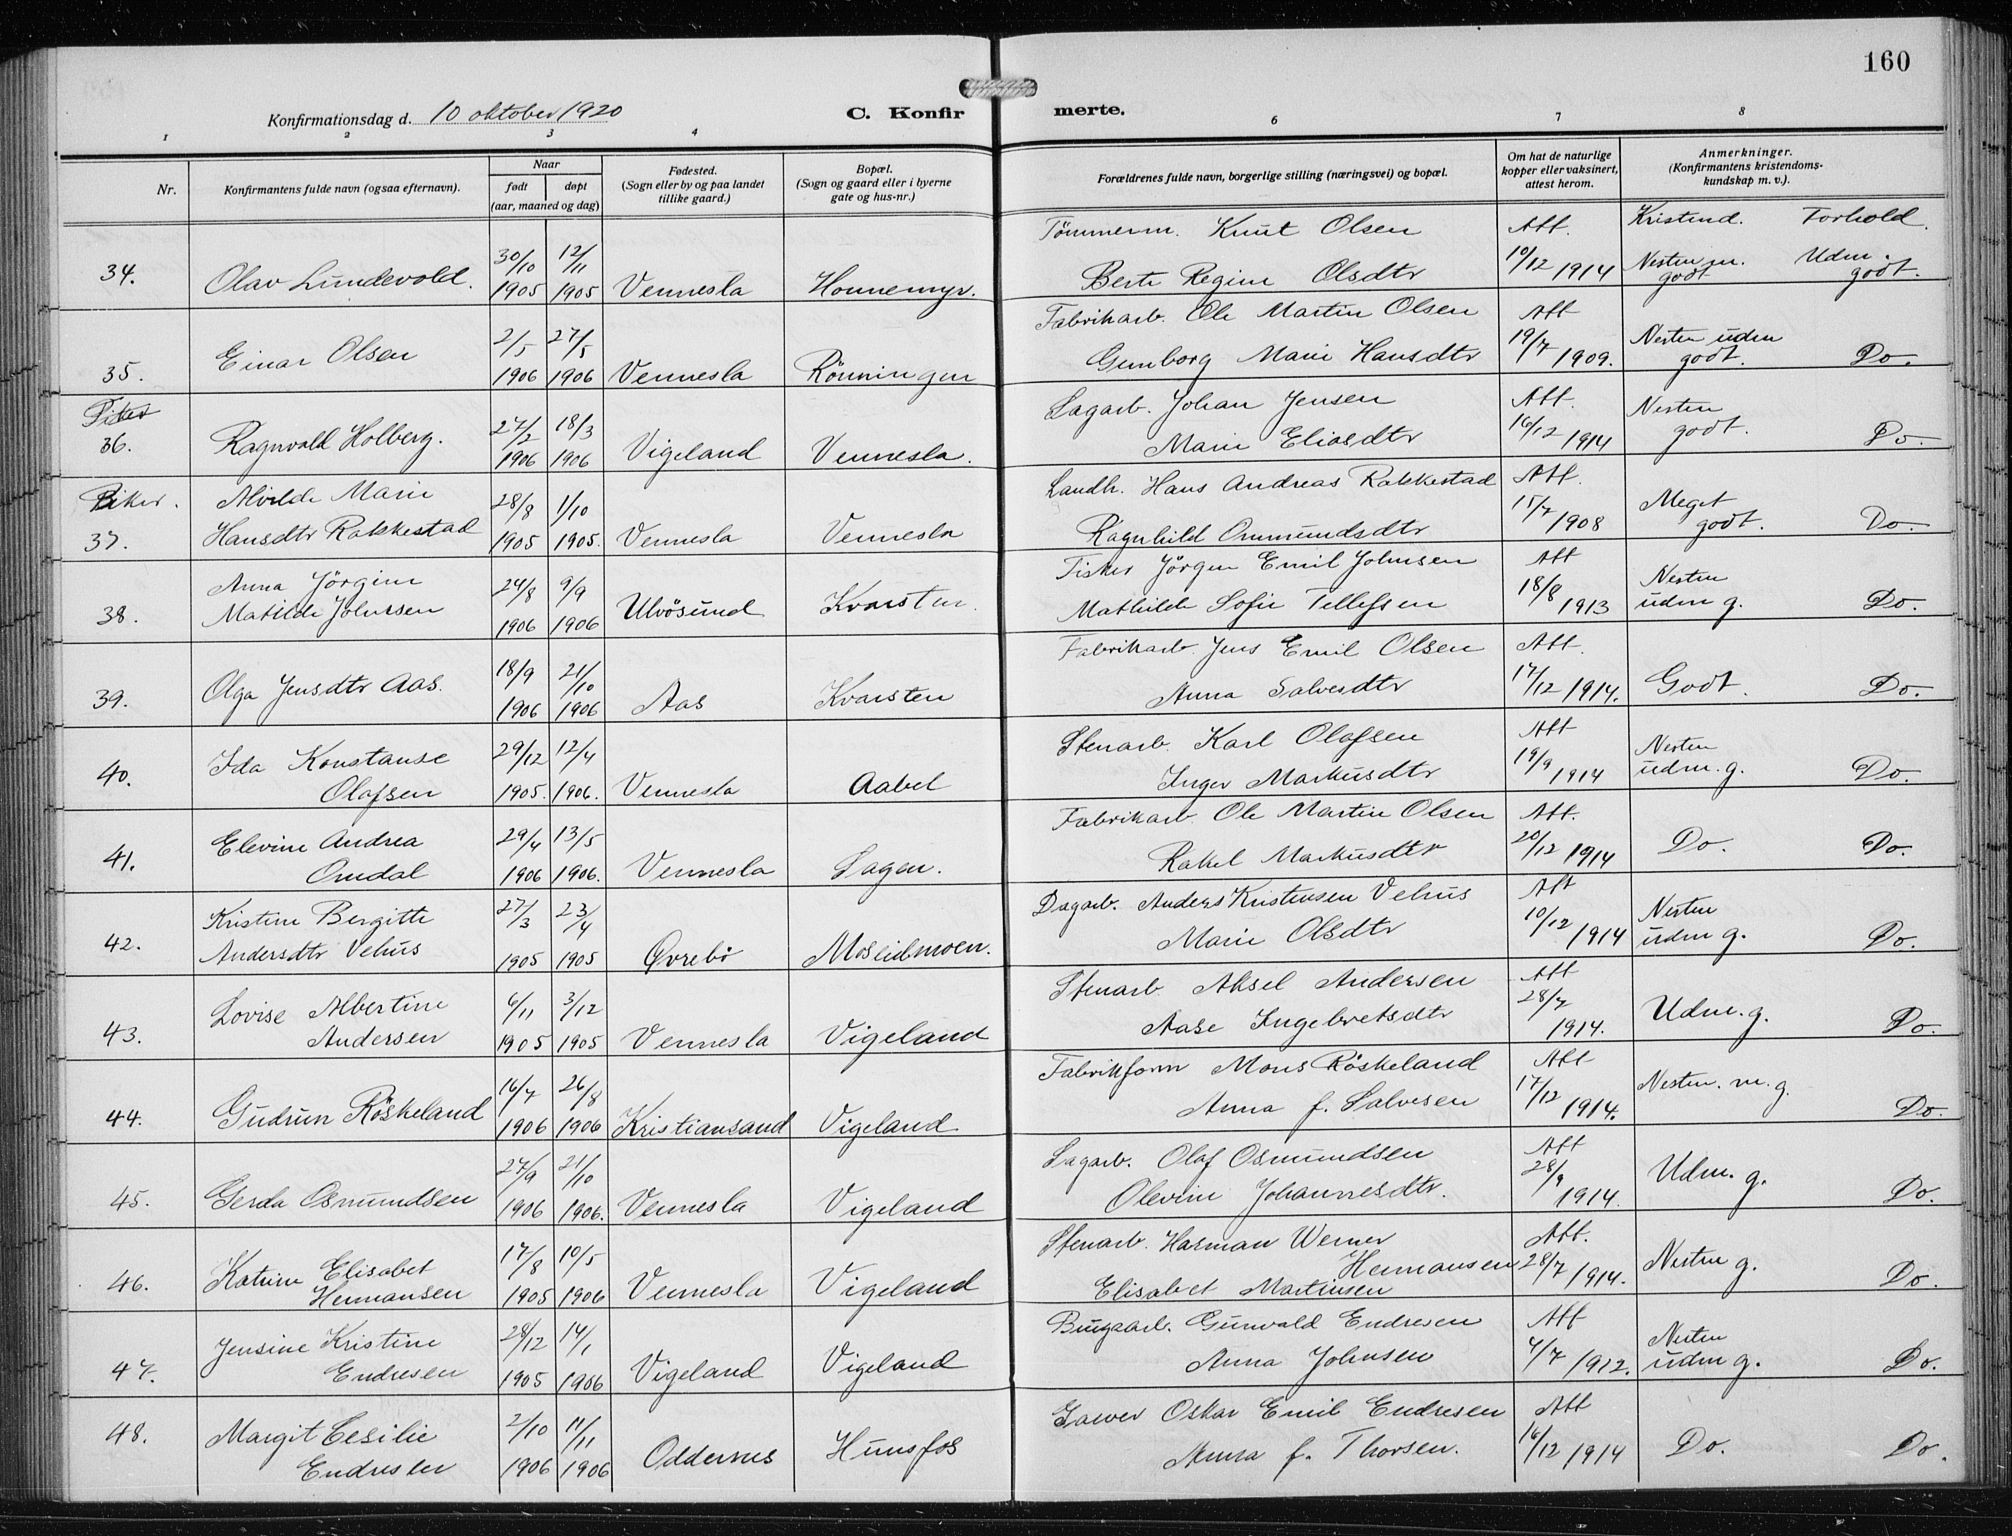 160
Konfirmationsdag d. 10 oktober 1920
C. Konfirmerte.
1 2 3 4 6 7 8
Nr.
Konfirmantens fulde navn (ogsaa efternavn).
Naar
født døpt
(aar, maaned og dag)
Fødested.
(Sogn eller by og paa landet
tillike gaard.)
Bopæl.
(Sogn og gaard eller i byerne
gate og hus-nr.)
Forældrenes fulde navn, borgerlige stilling (næringsvei) og bopæl.
Om hat de naturlige
kopper eller vaksinert,
attest herom.
Anmerkninger.
(Konfirmantens kristendoms-
kundskap m. v.).
Kristend. Forhold.
34. Olav Lundevold. 30/10 1905 12/11 1905 Vennesla Honnemyr.
Tömmerm. Knut Olsen
Berte Regine Olsdtr
Att. 10/12 1914 Nesten m. godt Udm. godt.
35. Einar Olsen 2/5 1906 27/5 1906 Vennesla Rönningen
Fabrikarb. Ole Martin Olsen
Gunborg Marie Hansdtr
Att 19/7 1909. Nesten udm godt. Do.
36. Ragnvald Holberg. 27/2 1906 18/3 1906 Vigeland Vennesla.
Sagarb. Johan Jensen
Marie Eliasdtr
Att. 16/12 1914 Nesten godt. Do.
Piker.
37. Alvilde Marie
Hansdtr Rakkestad 28/8 1905 1/10 1905. Vennesla Vennesla
Landh. Hans Andreas Rakkestad
Ragnhild Ommundsdtr
Att. 15/7 1908 Meget godt. Do.
38. Anna Jörgine
Matilde Johnsen 24/8 1906 9/9 1906 Ulvösund Kvarsten.
Fisker Jörgen Emil Johnsen
Mathilde Sofie Tellefsen
Att 18/8 1913 Nesten udm g. Do.
39. Olga Jensdtr Aas. 18/9 1906 21/10 1906 Aas Kvarsten
Fabrikarb. Jens Emil Olsen
Anna Salvesdtr
Att. 17/12 1914. Godt. Do.
40. Ida Konstanse
Olafsen 29/12 1905. 12/4 1906. Vennesla Aabel
Stenarb. Karl Olafsen
Inger Markusdtr
Att 19/9 1914 Nesten udm. g. Do.
41. Elevine Andrea
Omdal 29/4 1906 13/5 1906. Vennesla Sagen.
Fabrikarb. Ole Martin Olsen
Rakel Markusdtr
Att. 20/12 1914 Do. Do.
42. Kristine Bergitte
Andersdtr Vehus 27/3 1905 23/4 1905 Øvrebö Moseidmoen.
Dagarb. Anders Kristensen Vehus
Marie Olsdtr
Att 10/12 1914 Nesten udm g. Do.
43. Lovise Albertine
Andersen 6/11 1905 3/12 1905 Vennesla Vigeland
Stenarb. Aksel Andersen
Aase Ingebretsdtr
Att 28/7 1914. Udm. g. Do.
44. Gudrun Röskeland 16/7 1906 26/8 1906 Kristiansand Vigeland
Fabrikform Mons Röskeland
Anna f. Salvesen
Att 17/12 1914. Nesten. m. g. Do.
45. Gerda Osmundsen 27/9 1906 21/10 1906. Vennesla Vigeland
Sagarb. Olaf Osmundsen
Olevine Johannesdtr.
Att 28/9 1914. Udm. g. Do.
46. Katrine Elisabet
Hermansen 17/8 1905 10/5 1906 Vennesla Vigeland
Stenarb. Harman Werner
Hermansen
Elisabet Martinsen
Att. 28/7 1914. Nesten g. Do.
47. Jensine Kristine
Endresen 28/12 1905 14/1 1906 Vigeland Vigeland
Brugsarb. Gunvald Endresen
Anna Johnsen
Att 4/7 1912. Nesten udm g. Do.
48. Margit Cesilie
Endresen 2/10 1906 11/11 1906 Oddernes Hunsfos
Garver Oskar Emil Endresen
Anna f. Thorsen.
Att 16/12 1914 Do. Do.